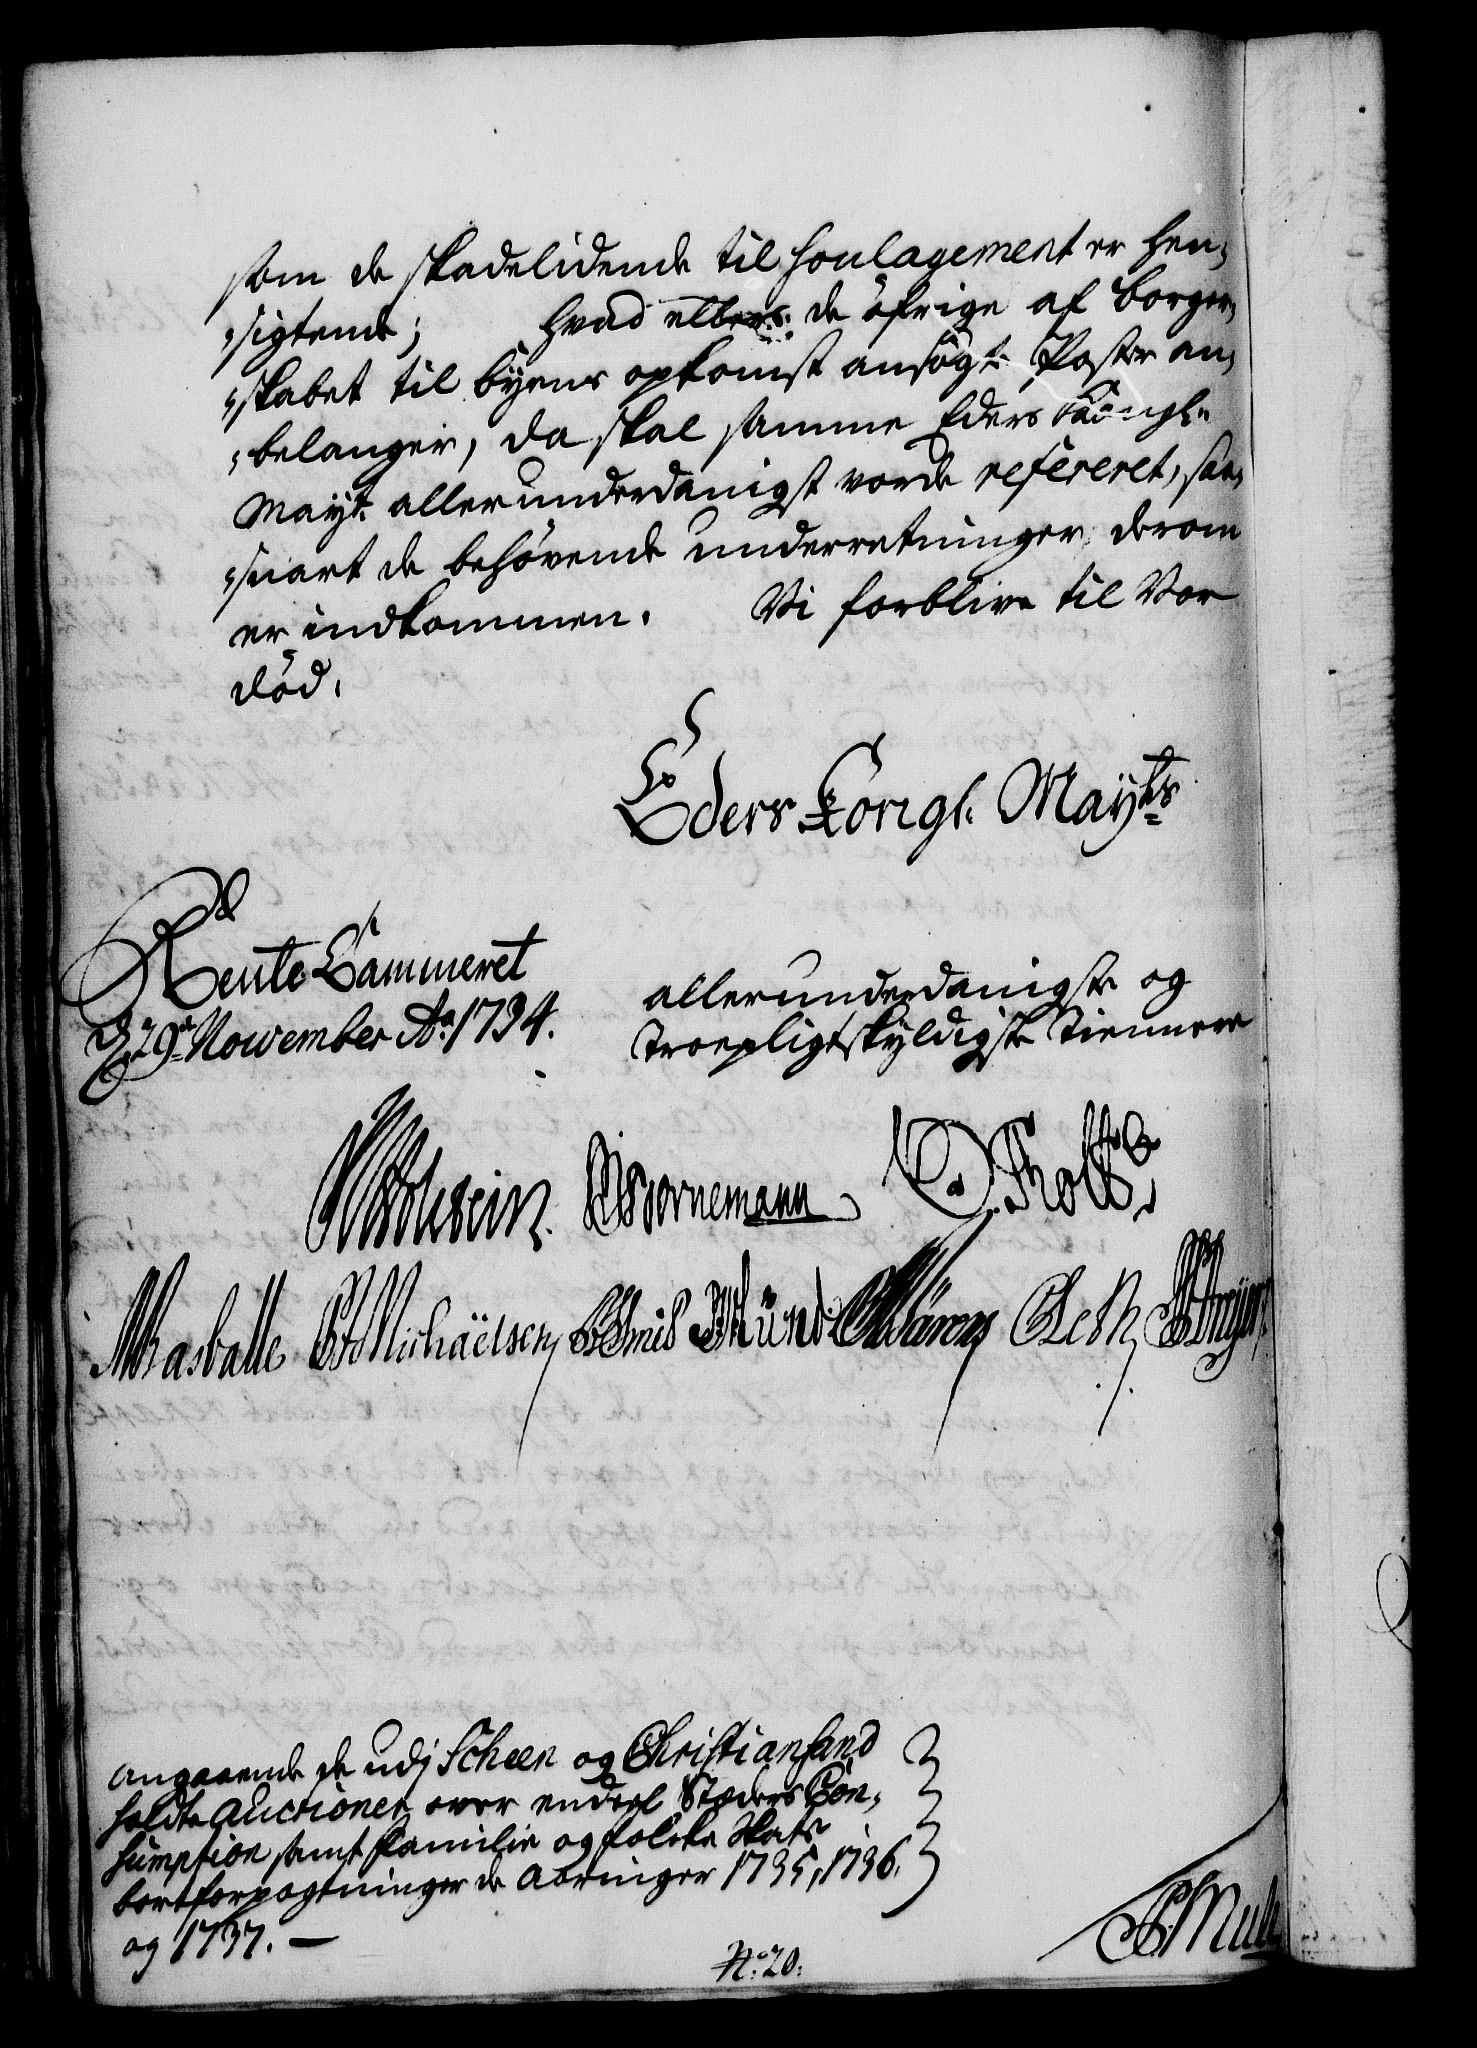 som de skadelidende til Soulagement er hen¬
„sigtende; Hvad ellers de öfrige af borger¬
„skabet til byens opkomst ansögte Poster an¬
„belanger, da skal samme Eders Kongl.
Mayt. allerunderdanigst vorde refereret, saa¬
„snart de behövende underretninger derom
er indkommen. Vi forblive til Vor
död.
Eders Kongl. Mayts
Rente Cammeret
d. 29de November Ao. 1734.
allerunderdanigste og
troepligtskyldigste Tiennere
Bornemann
Rasballe Michaëlsen
Angaaende de udj Scheen og Christiansand
holdte Auctioner over endeel Stæders Con¬
sumption samt Familie og folcke Skats
bortforpagtninger de Aaringer 1735, 1736.
og 1737. —
No. 20.